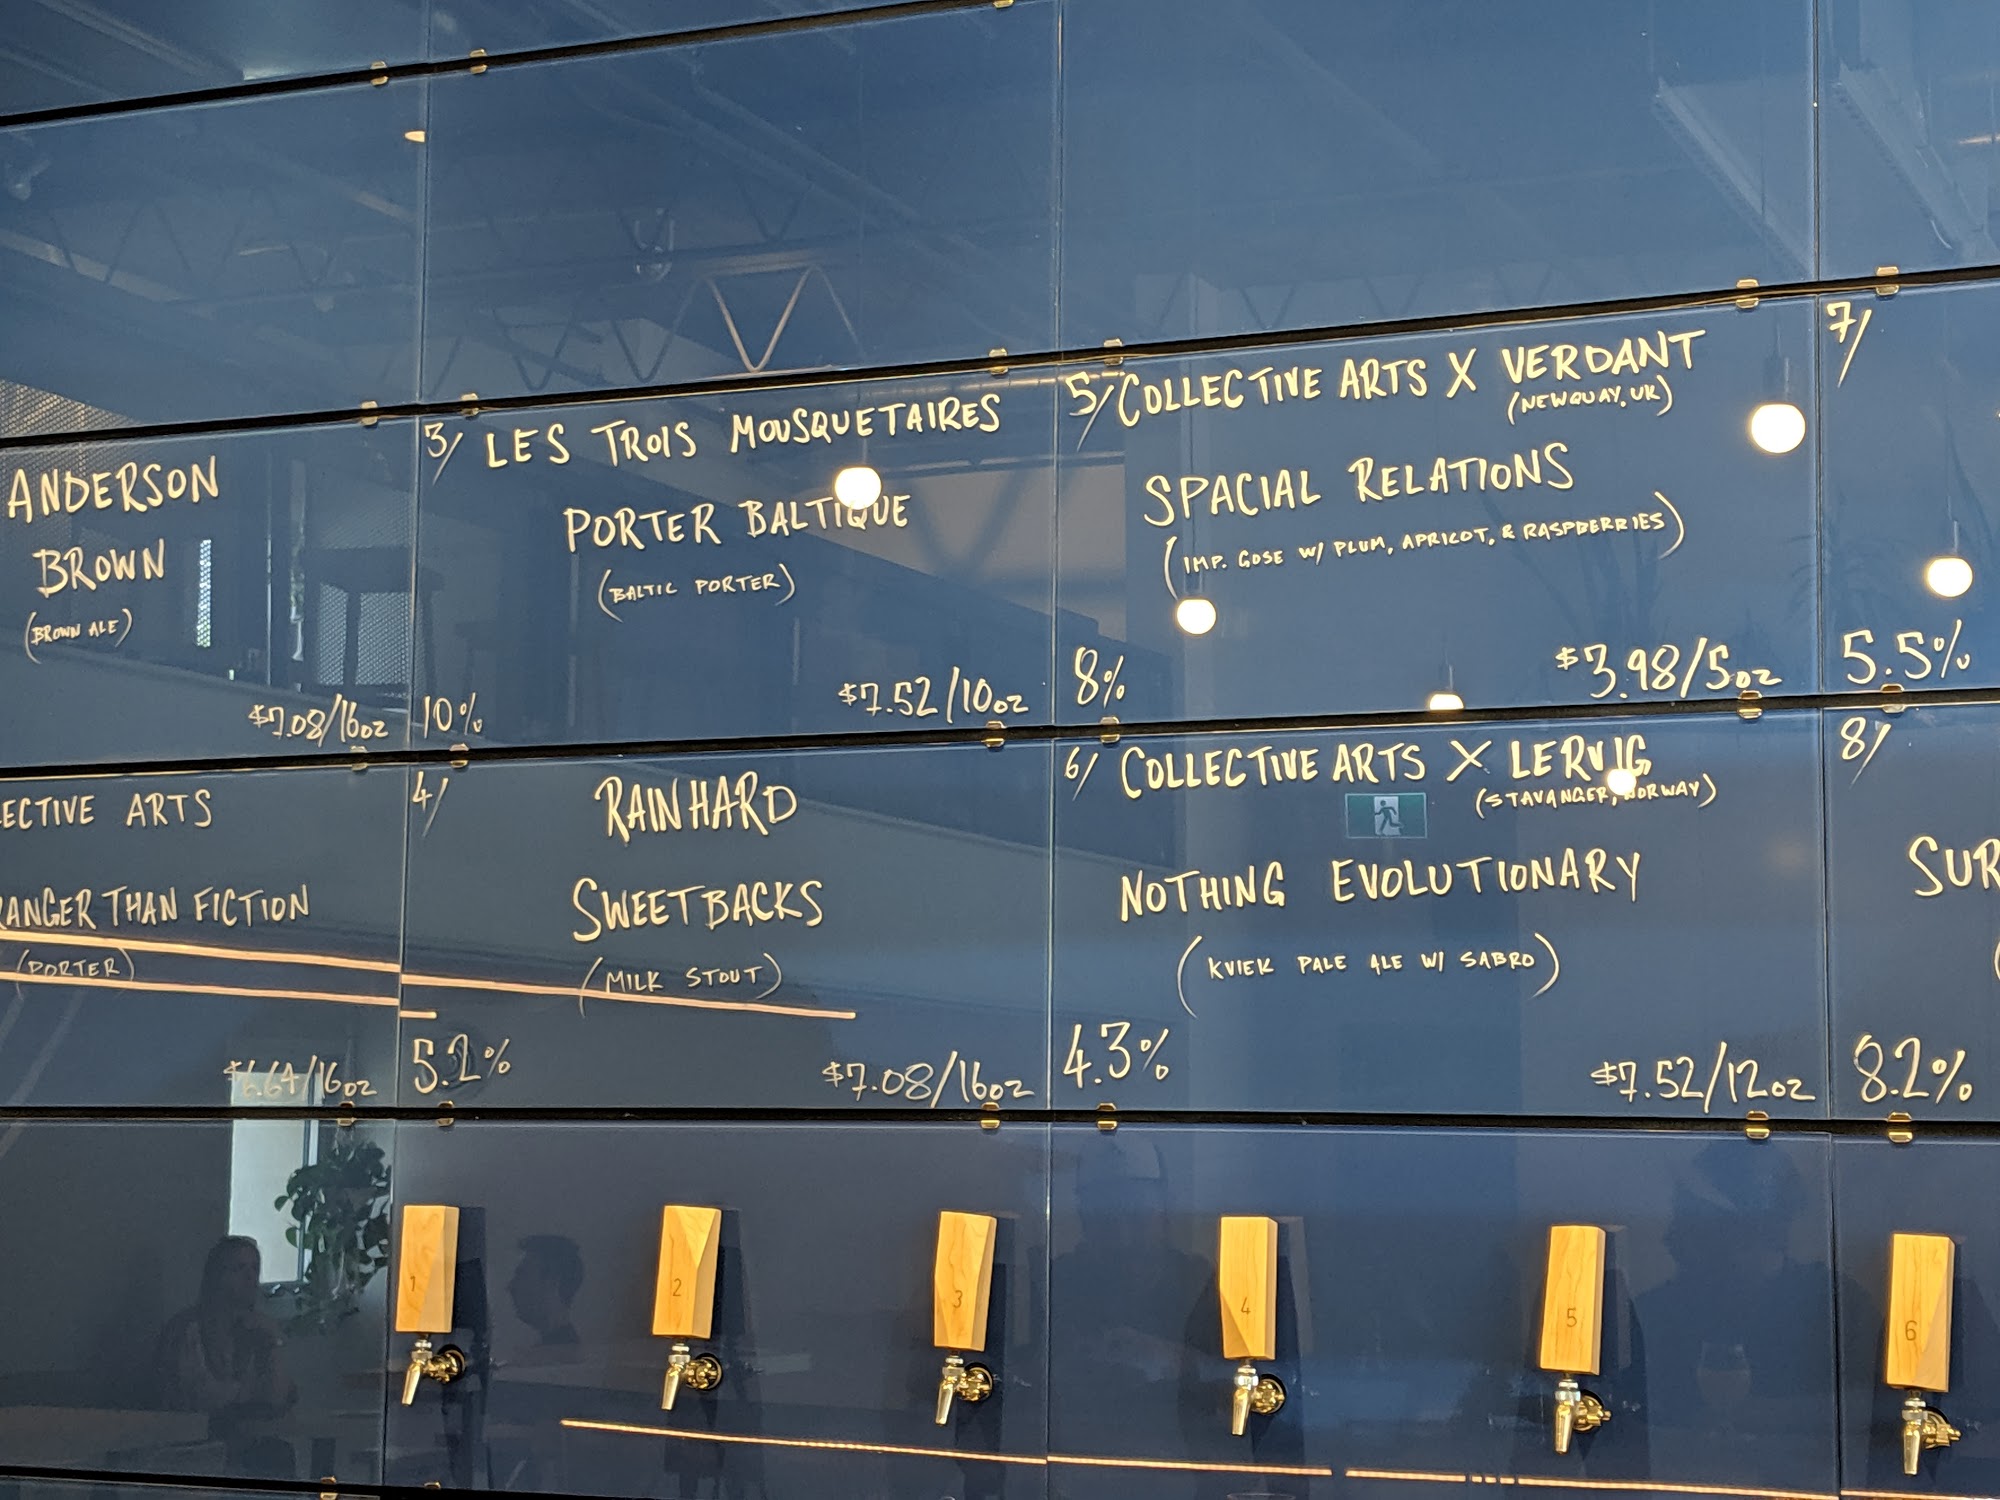 ANDERSON
BROWN
(BROWN ALE)
$7.08/16oz
ECTIVE ARTS
RANGER THAN FICTION
(PORTER)
$6.64/16oz
3/ LES TROIS MOUSQUETAIRES
PORTER BALTIQUE
(BALTIC PORTER)
10% $7.52/10oz
4/ RAINHARD
SWEETBACKS
(MILK STOUT)
5.2% $7.08/16oz
5/ COLLECTIVE ARTS X VERDANT
(NEWQUAY, UK)
SPACIAL RELATIONS
(IMP. GOSE W/ PLUM, APRICOT, & RASPBERRIES)
8% $3.98/5oz
6/ COLLECTIVE ARTS X LERVIG
(STAVANGER, NORWAY)
NOTHING EVOLUTIONARY
(KVIEK PALE ALE W/ SABRO)
4.3% $7.52/12oz
7/
5.5%
8/
SUR
8.2%
1 2 3 4 5 6